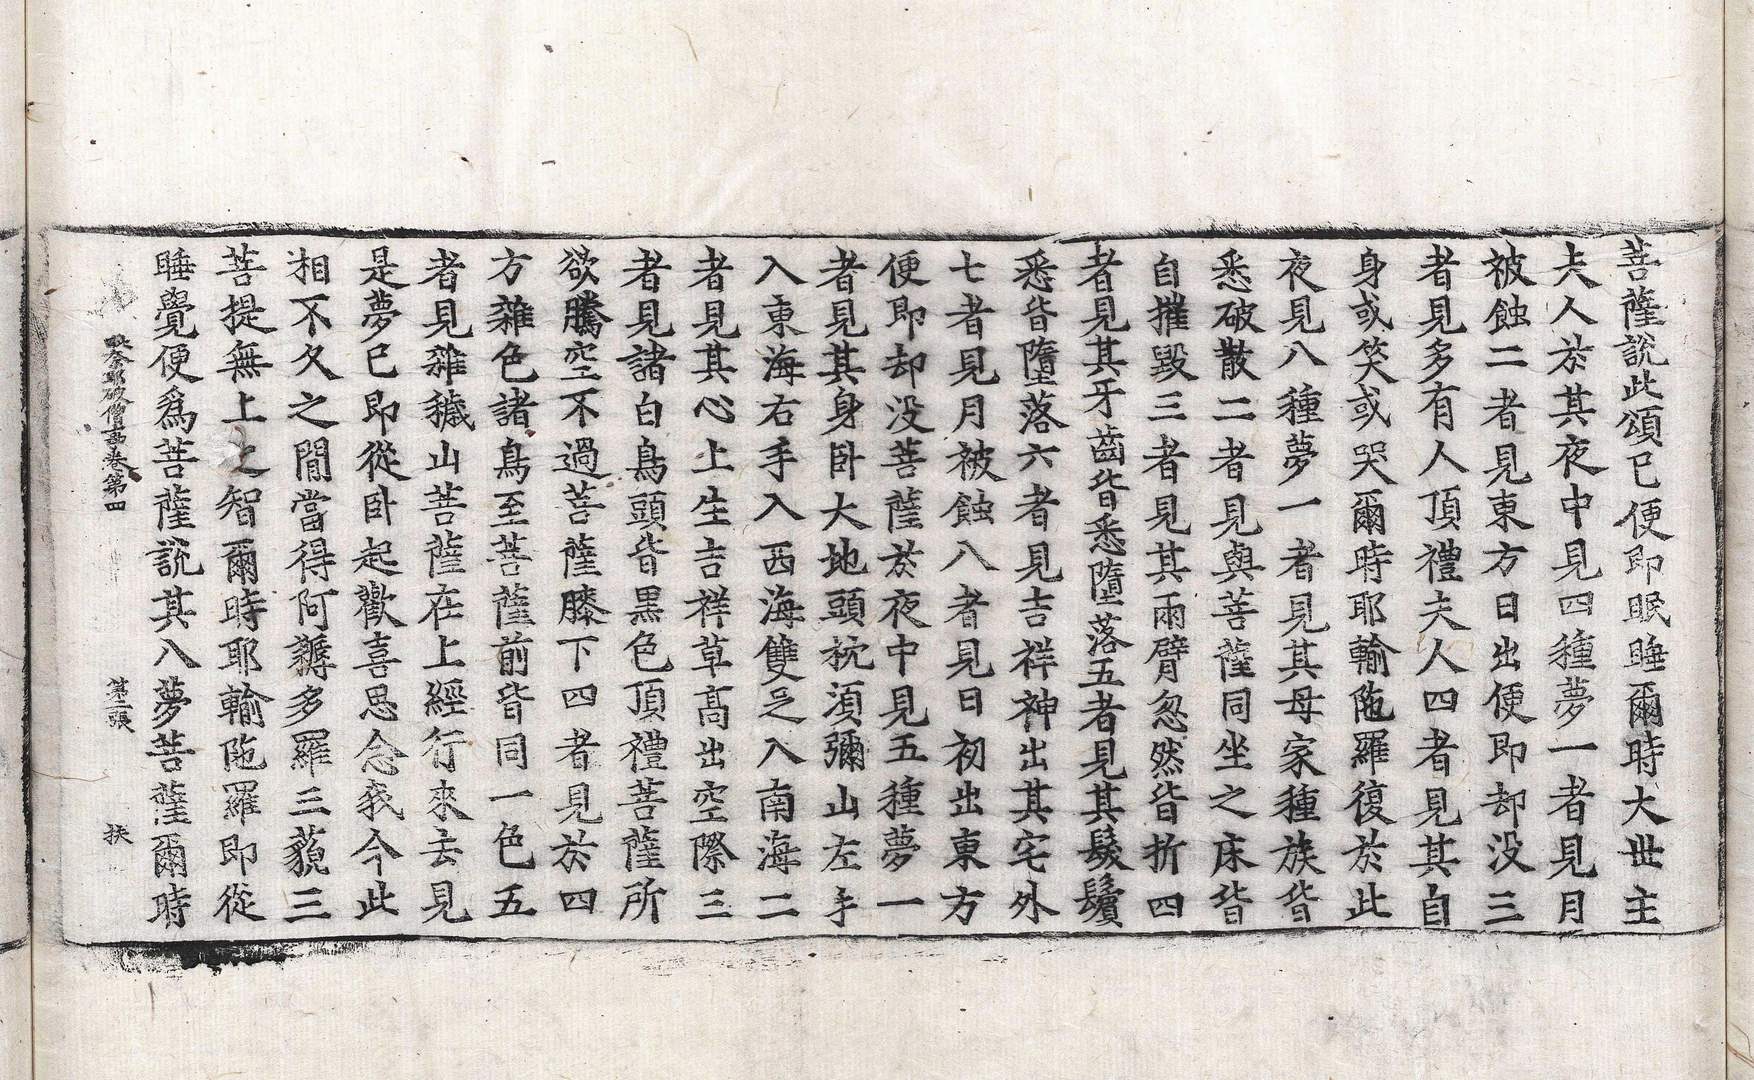 菩薩說此頌已便即眠睡爾時大世主
夫人於其夜中見四種夢一者見月
被蝕二者見東方日出便即却没三
者見多有人頂禮夫人四者見其自
身或笑或哭爾時耶輸陁羅復於此
夜見八種夢一者見其母家種族皆
悉破散二者見與菩薩同坐之床皆
自摧毀三者見其兩臂忽然皆折四
者見其牙齒皆悉墮落五者見其髮鬢
悉皆墮落六者見吉祥神出其宅外
七者見月被蝕八者見日初出東方
便即却没菩薩於夜中見五種夢一
者見其身卧大地頭枕須彌山左手
入東海右手入西海雙足入南海二
者見其心上生吉祥草高出空際三
者見諸白鳥頭皆黒色頂禮菩薩所
欲騰空不過菩薩膝下四者見於四
方雜色諸鳥至菩薩前皆同一色五
者見雜穢山菩薩在上經行來去見
是夢已即從卧起歡喜思念我今此
相不久之間當得阿耨多羅三藐三
菩提無上之智爾時耶輸陁羅即從
睡覺便爲菩薩說其八夢菩薩爾時
奈耶破僧事卷第四 第二張 扶